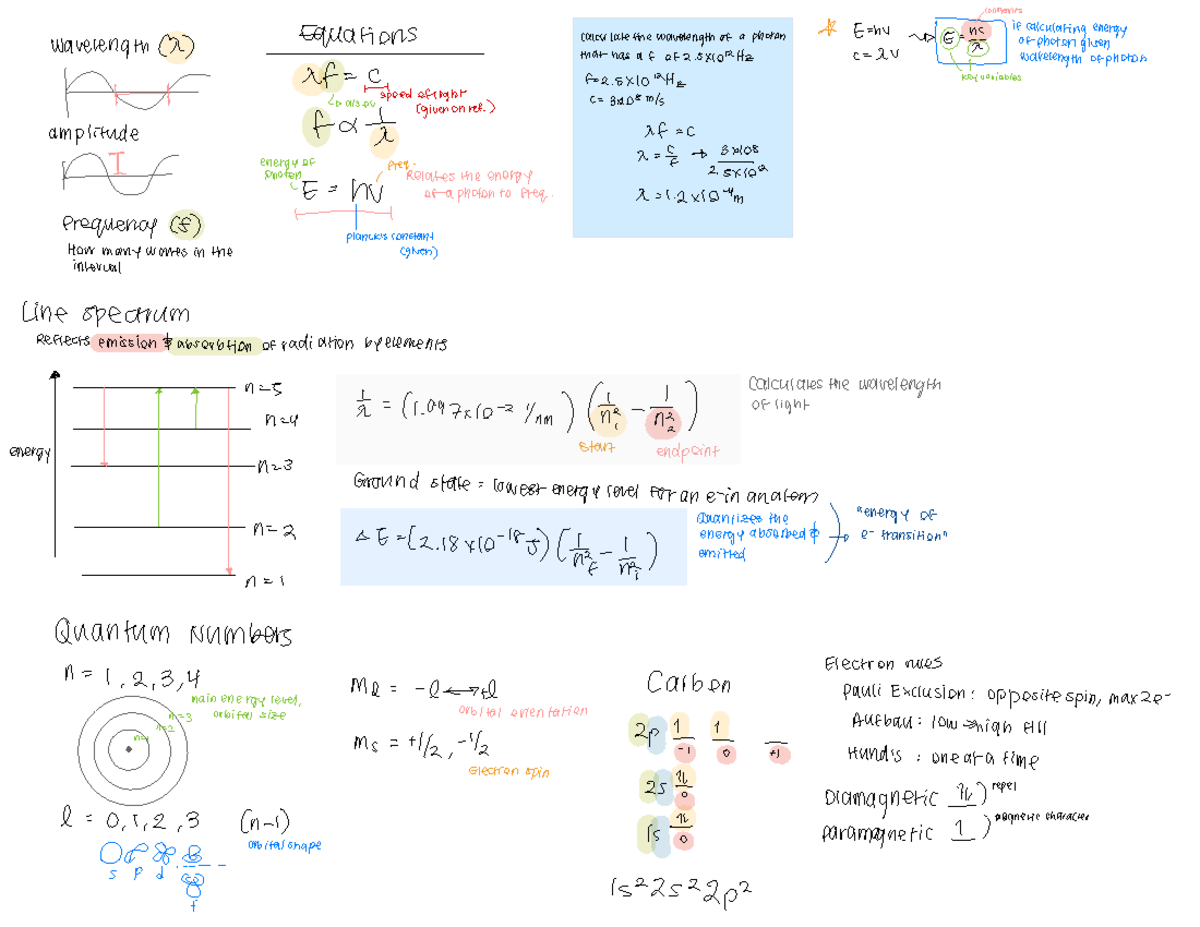 wavelength (λ)
amplitude
frequency (f)
How many waves in the
interval
Equations
λf = c
↳ also ν
speed of light
(given on ref.)
f ∝ 1/λ
energy of
photon
freq.
E = hν
Relates the energy
of a photon to freq.
planck's constant
(given)
calculate the wavelength of a photon
that has a f of 2.5×10¹² Hz
f=2.5×10¹² Hz
c= 3×10⁸ m/s
λf = c
λ = c/f → 3×10⁸/2.5×10¹²
λ = 1.2×10⁻⁴ m
E=hν
c = λν
constants
E = hc/λ
key variables
if calculating energy
of photon given
wavelength of photon
Line spectrum
Reflects emission & absorbtion of radiation by elements
energy
n=5
n=4
n=3
n=2
n=1
1/λ = (1.097×10⁻² 1/nm) (1/n₁² - 1/n₂²)
start
endpoint
Calculates the wavelength
of light
Ground state = lowest energy level for an e- in an atom
ΔE = (2.18×10⁻¹⁸ J) (1/n²f - 1/n²i)
Quantizes the
energy absorbed &
emitted
"energy of
e- transition"
Quantum Numbers
n = 1, 2, 3, 4
main energy level,
orbital size
n=3
n=2
n=1
l = 0, 1, 2, 3 (n-1)
orbital shape
s p d
f
mₗ = -l ↔ +l
orbital orientation
mₛ = +1/2, -1/2
Electron spin
Carbon
2p 1 1
-1 0 +1
2s 1l
0
1s 1l
0
1s² 2s² 2p²
Electron rules
Pauli Exclusion: opposite spin, max 2e-
Aufbau: low → high fill
Hund's: one at a time
Diamagnetic 1l ) repel
paramagnetic 1 ) magnetic character